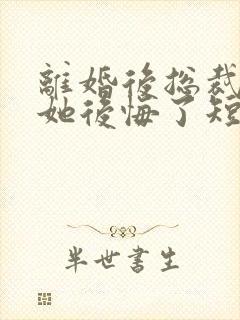 離婚後總裁
她後悔了短
半世書生